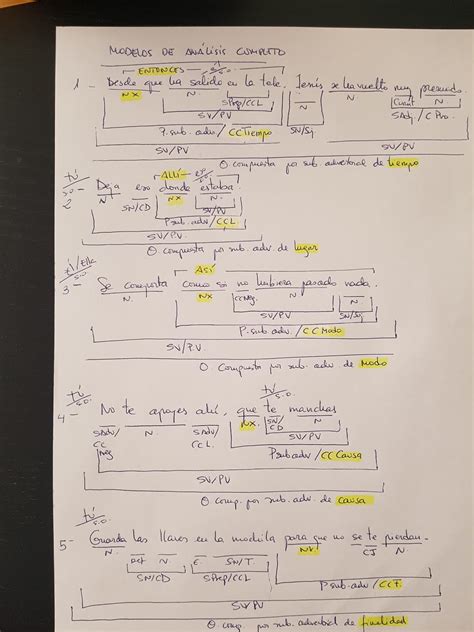 MODELOS DE ANÁLISIS COMPLETO
ENTONCES él S.O.
1 - Desde que ha salido en la tele, Jenís se ha vuelto muy presumido.
NX N. N N
SPrep/CCL Cuant N
SV/PV SN/Suj SAdj / C Pvo.
P. sub. adv / CC Tiempo
SV/PV SV/PV
O compuesta por sub. adverbial de tiempo
tú S.O. Allí eso S.O.
2 - Deja eso donde estaba.
N SN/CD NX N.
SV/PV
P sub adv / CCL
SV/PV
O compuesta por sub. adv. de lugar
él/ella S.O. Así
3 - Se comporta como si no hubiera pasado nada.
N. NX CCNeg. N N
SV/PV SN/Suj
P. sub adv. / CC Modo
SV/PV
O compuesta por sub. adv de modo
tú S.O. tú S.O.
4 - No te apoyes ahí, que te manchas
SAdv/ CC Neg N. SAdv/ CCL NX. SN/ CD N
SV/PV
P sub adv / CC Causa
SV/PV
O comp. por sub. adv. de causa
tú S.O.
5 - Guarda las llaves en la mochila para que no se te pierdan.
N Det N E SN/T NX. CI N.
SN/CD SPrep/CCL
P sub. adv / CCF.
SV/PV
O comp. por sub. adverbial de finalidad